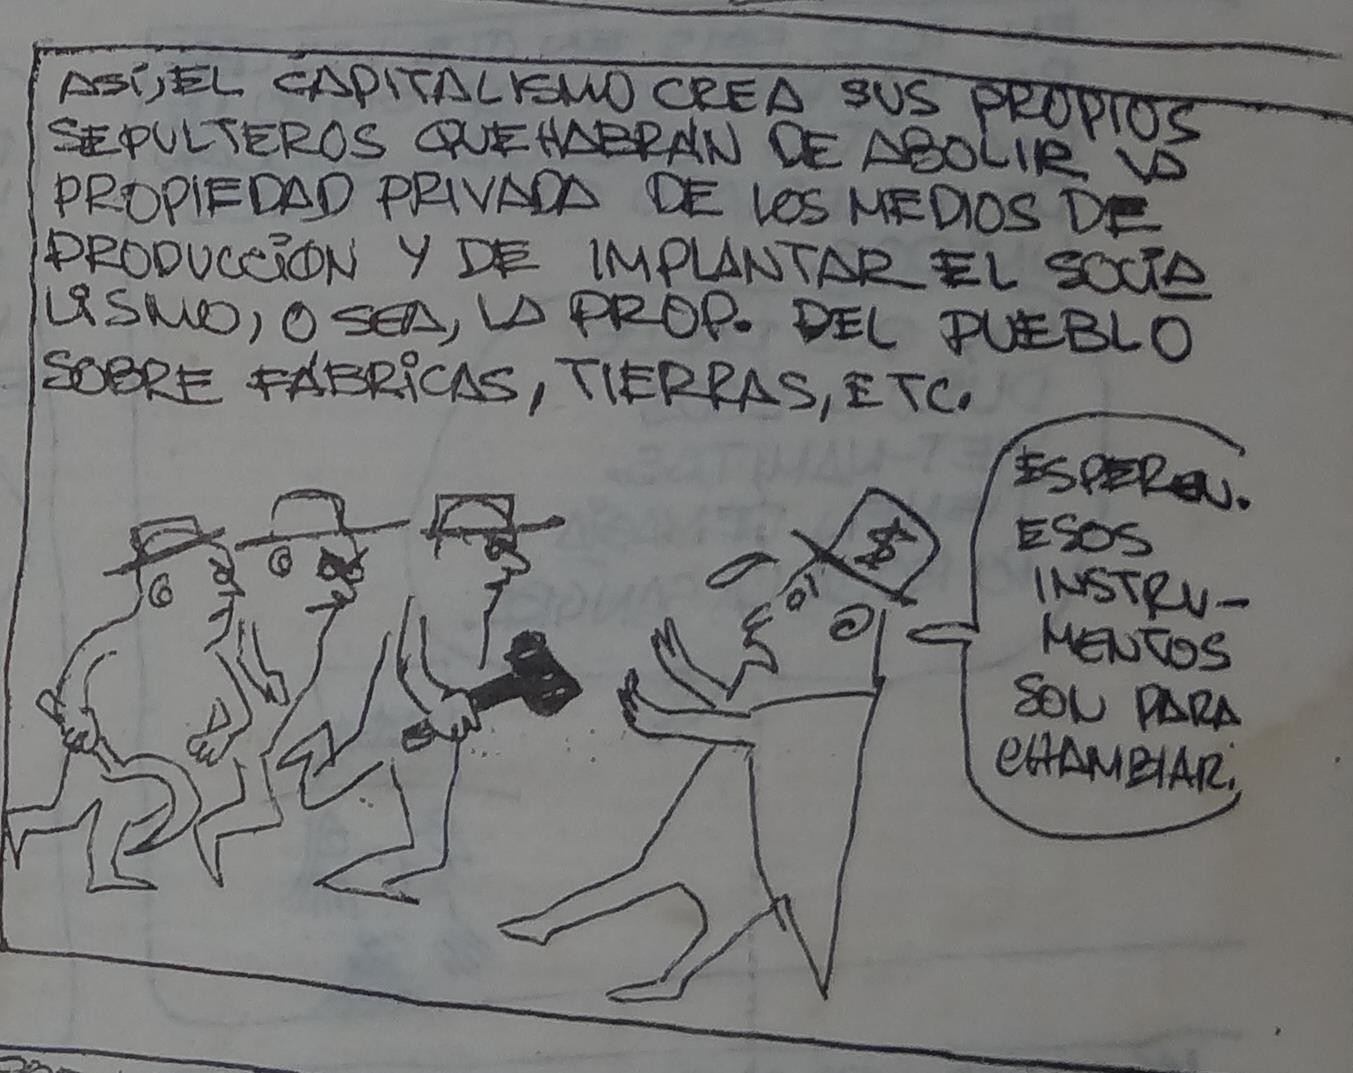 ASÍ, EL CAPITALISMO CREA SUS PROPIOS
SEPULTEROS QUE HABRÁN DE ABOLIR LA
PROPIEDAD PRIVADA DE LOS MEDIOS DE
PRODUCCIÓN Y DE IMPLANTAR EL SOCIA
LISMO, O SEA, LA PROP. DEL PUEBLO
SOBRE FÁBRICAS, TIERRAS, ETC.
$
ESPEREN.
ESOS
INSTRU-
MENTOS
SON PARA
CHAMBIAR.